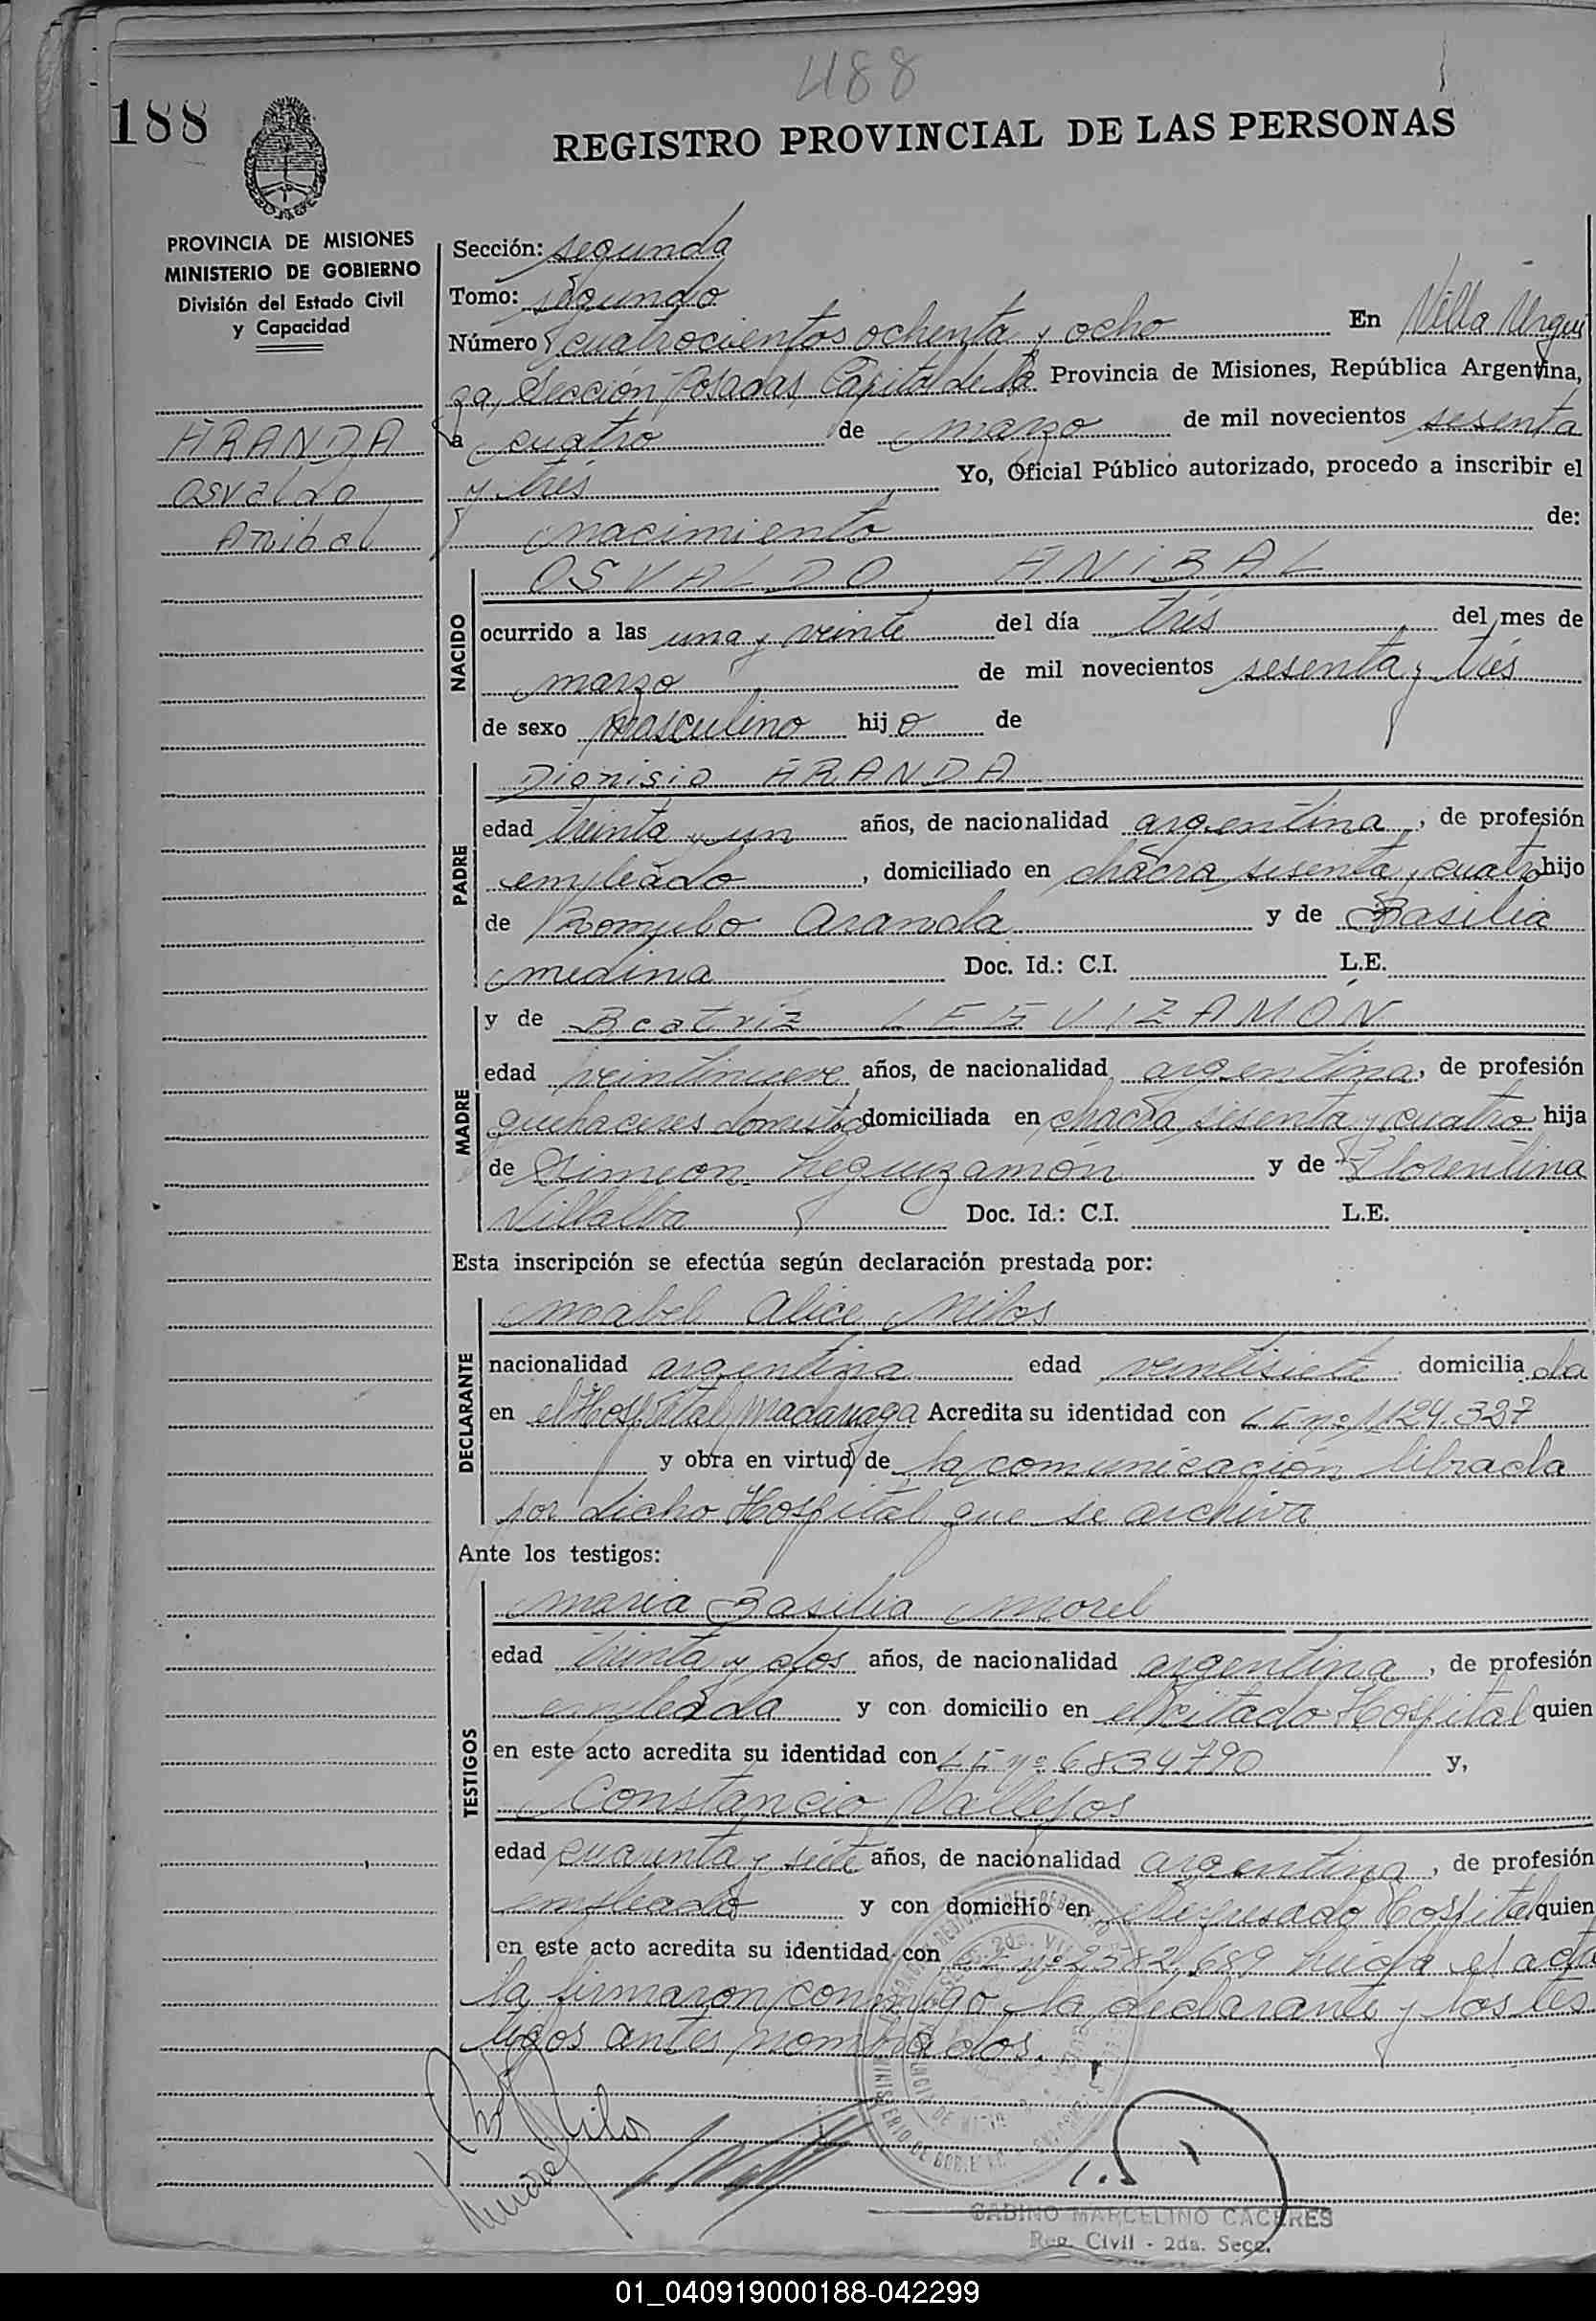 488
188
REGISTRO PROVINCIAL DE LAS PERSONAS
PROVINCIA DE MISIONES
MINISTERIO DE GOBIERNO
División del Estado Civil
y Capacidad
ARANDA
Osvaldo
Anibal
Sección: segunda
Tomo: segundo
Número cuatrocientos ochenta y ocho En Villa Urqui
za, Sección Posadas, Capital de la Provincia de Misiones, República Argentina,
a cuatro de marzo de mil novecientos sesenta
y trés Yo, Oficial Público autorizado, procedo a inscribir el
nacimiento de:
NACIDO
OSVALDO ANIBAL
ocurrido a las una y veinte del día trés del mes de
marzo de mil novecientos sesenta y trés
de sexo masculino hijo de
PADRE
Dionisio ARANDA
edad treinta y un años, de nacionalidad argentina, de profesión
empleado, domiciliado en chacra sesenta y cuatro hijo
de Romulo Aranda y de Basilia
medina Doc. Id.: C.I. L.E.
MADRE
y de Beatriz LEGUIZAMON
edad veintinueve años, de nacionalidad argentina, de profesión
quehaceres domestic domiciliada en chacra sesenta y cuatro hija
de Simeon Leguizamón y de Florentina
Villalba Doc. Id.: C.I. L.E.
Esta inscripción se efectúa según declaración prestada por:
DECLARANTE
mabel Alice Milos
nacionalidad argentina edad veintisiete domiciliada
en el Hospital Madariaga Acredita su identidad con nº 1124.327
y obra en virtud de la comunicación librada
por dicho Hospital que se archiva
Ante los testigos:
TESTIGOS
maria Basilia morel
edad treinta y dos años, de nacionalidad argentina, de profesión
empleada y con domicilio en el citado Hospital quien
en este acto acredita su identidad con nº 6834790 y,
Constancio Vallejos
edad cuarenta y siete años, de nacionalidad argentina, de profesión
empleado y con domicilio en el expresado Hospital quien
en este acto acredita su identidad con nº 2582.689 leída el acta
la firmaron conmigo la declarante y los tes
tigos antes nombrados.
GABINO MARCELINO CACERES
Reg. Civil - 2da. Secc.
01_040919000188-042299